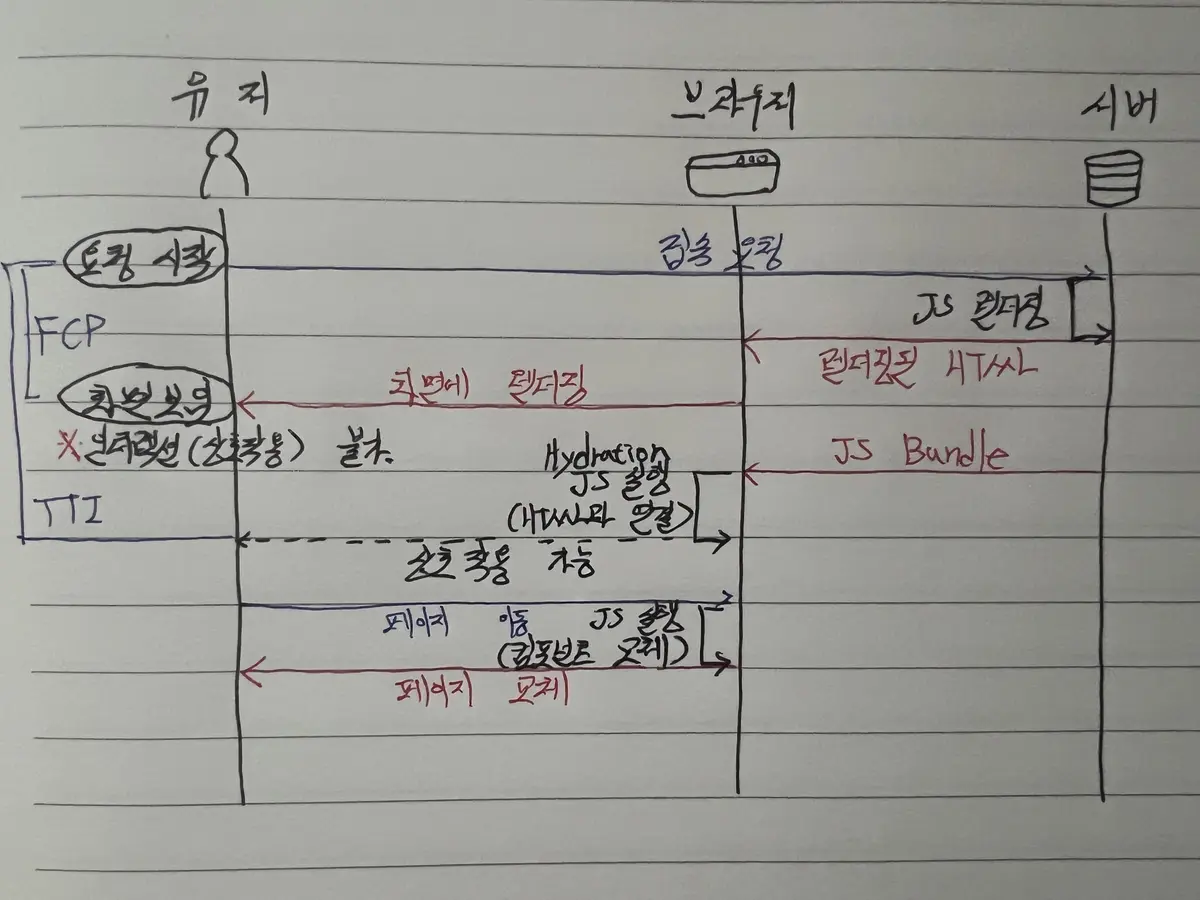 유저
브라우저
서버
요청 시작
접속 요청
JS 렌더링
FCP
렌더링된 HTML
화면에 렌더링
화면보임
X 인터랙션(상호작용) 불가.
JS Bundle
Hydration
JS 실행
(HTML과 연결)
TTI
상호작용 가능
페이지 이동
JS 실행
(컴포넌트 교체)
페이지 교체